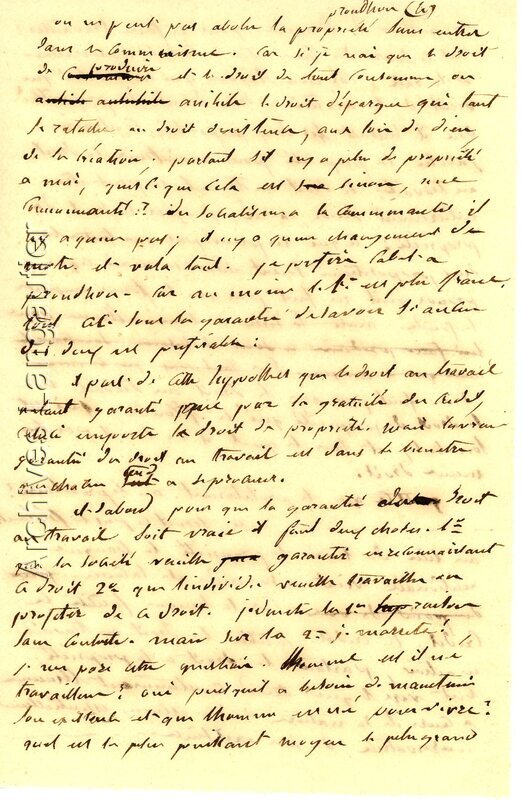 proudhon (4)
on ne peut pas abolir la propriété sans entrer
dans le Communisme. Car si je nie que le droit
de produire et le droit de tout Consommer, on
anihile le droit d'épargne qui tant
se ratache au droit dexistence, aux loix de dieu,
de la Création. partant s'il n'y a plus de propriété
a moi, qu'est ce que cela est sinon, une
Communauté?? du Socialisme a la Communauté il
ny a qu'un pas; il n'y a qu'un changement de
mots. et voila tout. je préfère Cabet a
proudhon. Car au moins le 1er est plus franc,
des deux est préférable!
il part de cette hypothèse que le droit au travail
garanti par la gratuité du Crédit,
emporte le droit de propriété. mais la vraie
garantie du droit au travail est dans le bienêtre
que chacun a se procurer.
et d'abord pour que la garantie droit
au travail soit vraie il faut deux choses. 1er
la société veuille garantir en reconnaissant
ce droit 2me que l'individu veuille travailler en
profiter de ce droit. j'admets la 1re
sans Conteste. mais sur la 2me je m'arrête!
je me pose cette question. lhomme est il né
travailleur? oui puisqu'il a besoin de maintenir
son existence et que lhomme est né pour vivre?
quel est le plus puissant moyen le plus grand
Archives Largautier